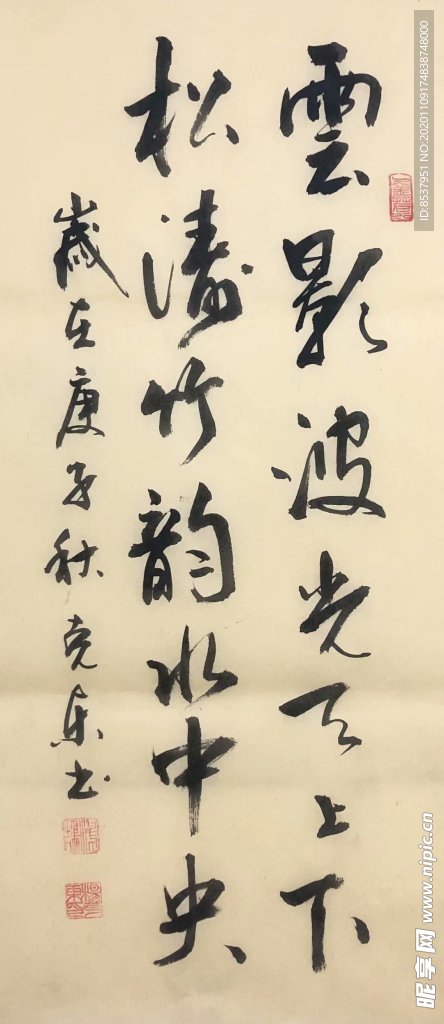 雲影波光天上下
松濤竹韵水中央
歲在庚子秋克东书
ID:8537951 NO:20201109174838748000
昵享网 www.nipic.cn